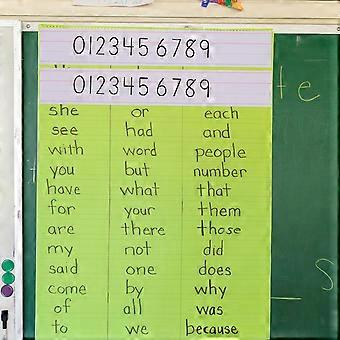 0123456789
0123456789
she or each
see had and
with word people
you but number
have what that
for your them
are there those
my not did
said one does
come by why
of all was
to we because
te
s